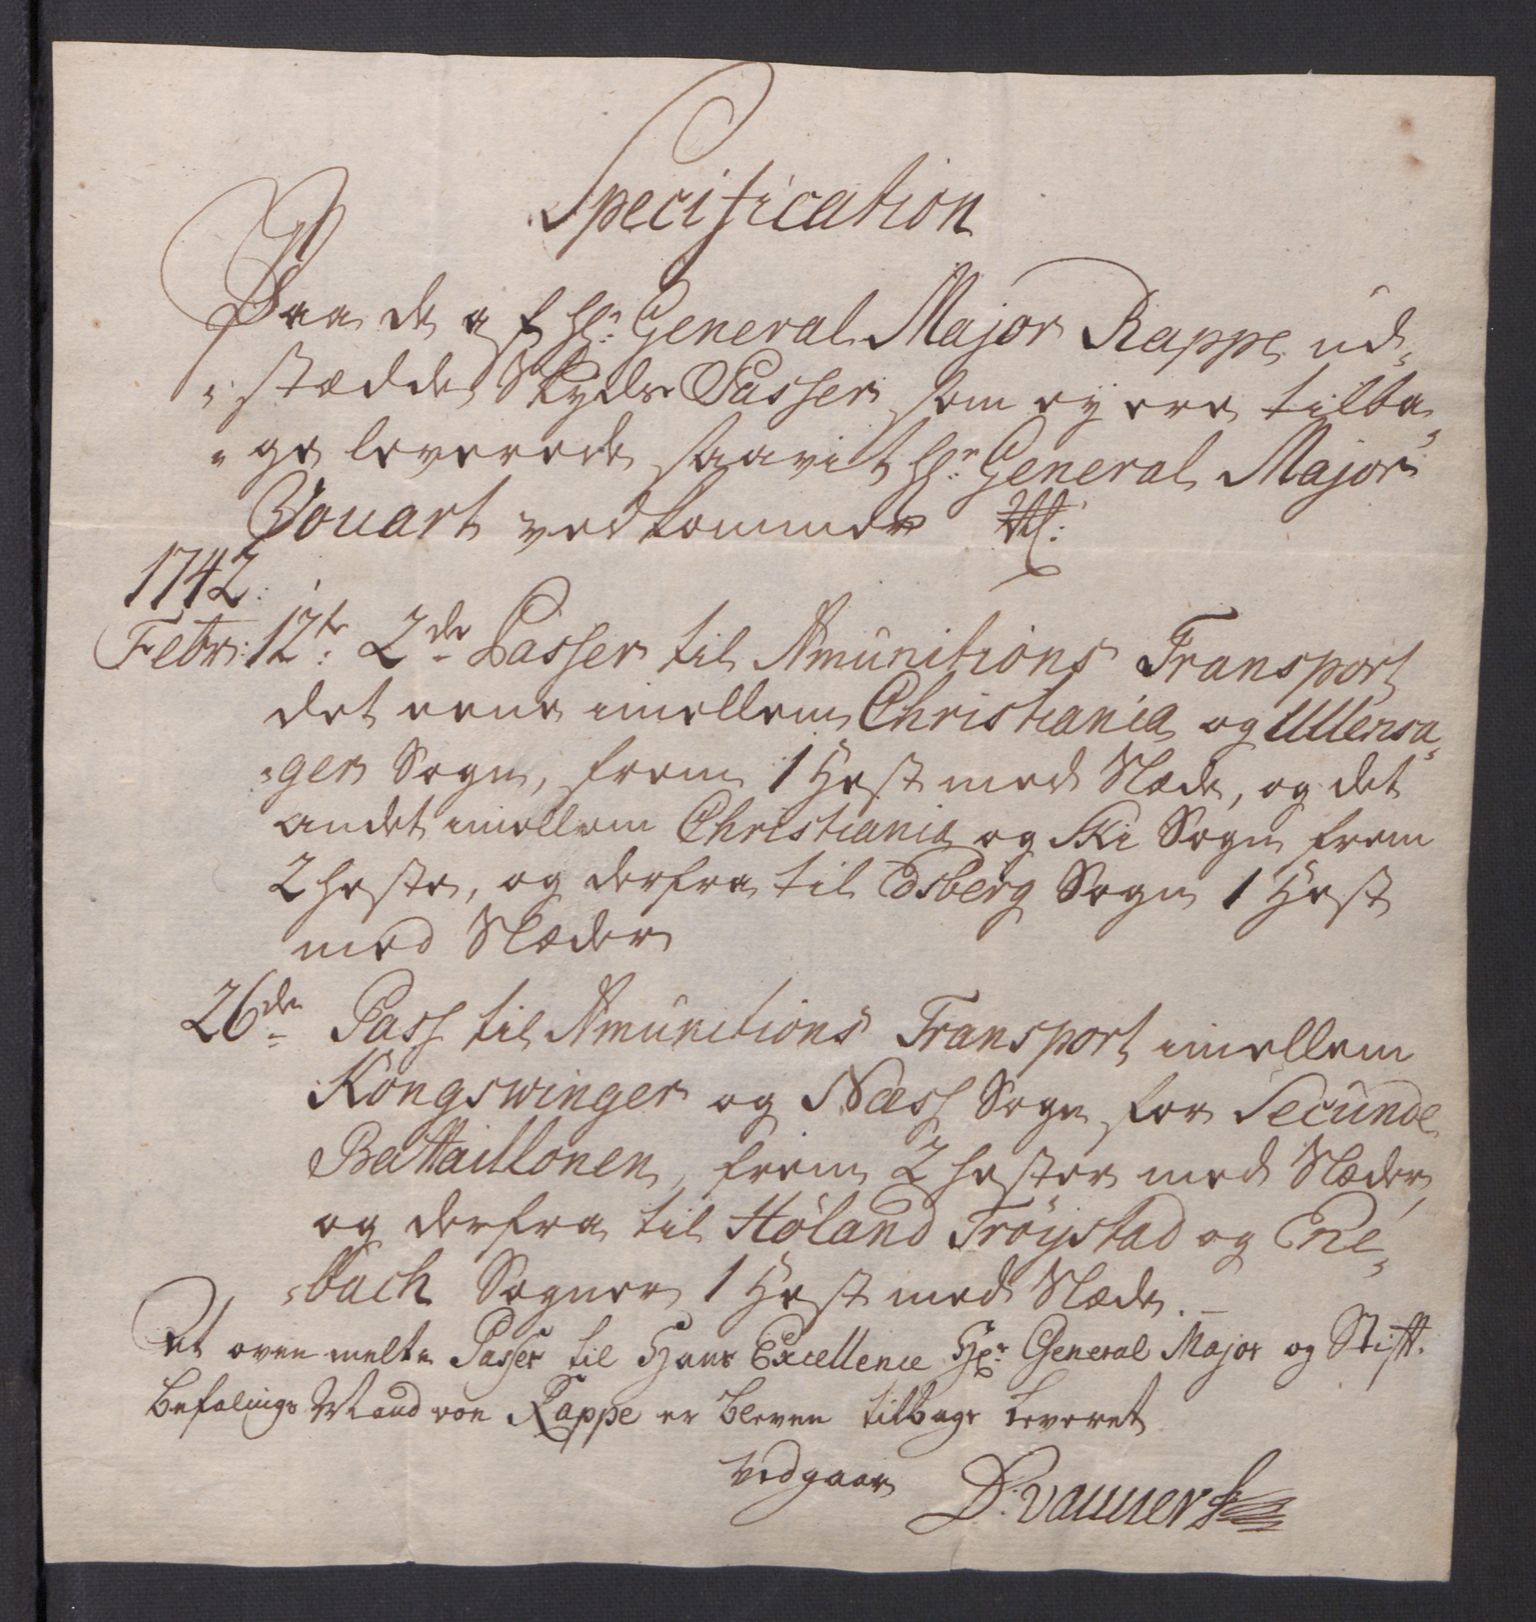 Specification
Paa de af Hr: General Major Rappe ud-
-stædde Skyds Passer som ey ere tilba-
-ge leverede saavit Hr: General Major
Vouart vedkommer
1742:
Febr: 12te: 2de Passer til Amunitions Transport
det eene imellem Christiania og Ullensa-
-ger Sogn, frem 1 Hest med Slæde, og det
andet imellem Christiania og Ski Sogn frem
2 heste, og derfra til Edsberg Sogn 1 Hest
med Slæder
26de Pass til Amunitions Transport imellem
Kongswinger og Næss Sogn for Secunde
Battaillonen, frem 2 hester med Slæder
og derfra til Høland Trøystad og Ene-
-bach Sogner 1 Hest med Slæde. –
Et oven melte Passer til Hans Excellence Hr: General Major og Stifft.
befalings Mand von Rappe er bleven tilbage leveret
Vedgaar D: Vauuert